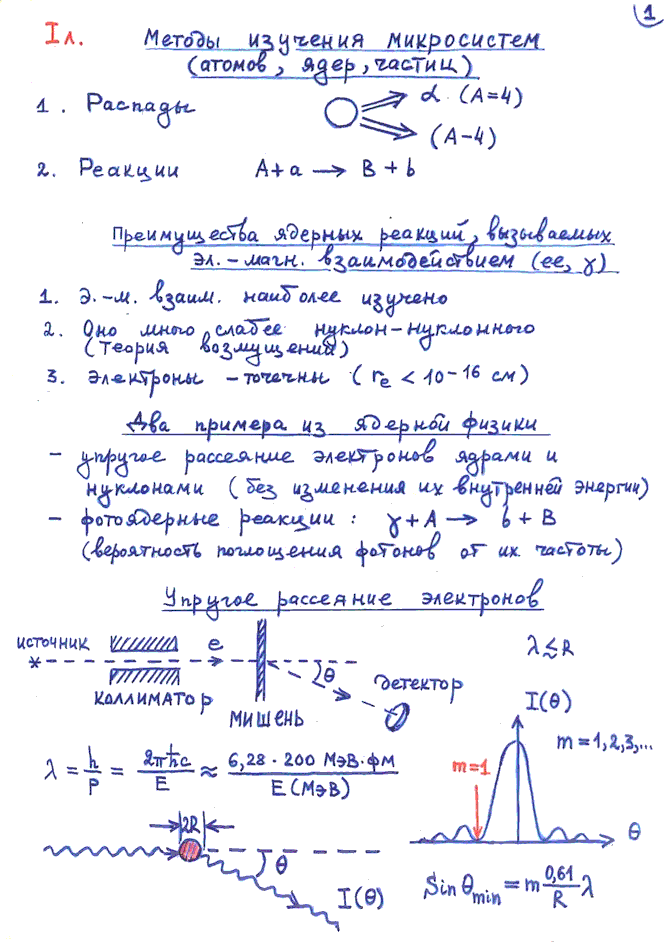 1
I л.
Методы изучения микросистем
(атомов, ядер, частиц)
1. Распады
α (A=4)
(A-4)
2. Реакции A+a → B + b
Преимущества ядерных реакций, вызываемых
эл.-магн. взаимодействием (ee, γ)
1. Э.-м. взаим. наиболее изучено
2. Оно много слабее нуклон-нуклонного
(теория возмущений)
3. Электроны - точечны (re < 10-16 см)
Два примера из ядерной физики
- упругое рассеяние электронов ядрами и
нуклонами (без изменения их внутренней энергии)
- фотоядерные реакции: γ+A → b + B
(вероятность поглощения фотонов от их частоты)
Упругое рассеяние электронов
источник
коллиматор
e
мишень
θ
детектор
λ ≲ R
I(θ)
m=1,2,3,...
m=1
θ
λ = h/p = 2πħc/E ≈ 6,28·200 МэВ·фм/E(МэВ)
2R
θ
I(θ)
Sin θmin = m 0,61/R λ